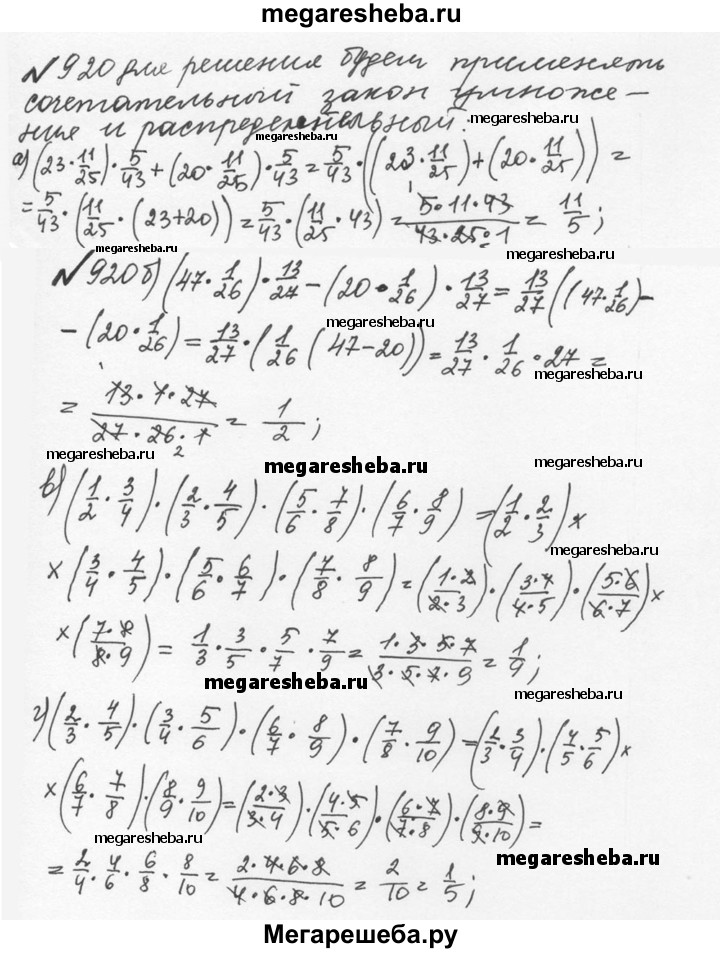 megaresheba.ru
№920 для решения будем применять
сочетательный закон умноже-
ния и распределительный.
megaresheba.ru
а) (23·11/25)·5/43+(20·11/25)·5/43=5/43·((23·11/25)+(20·11/25))=
=5/43·(11/25·(23+20))=5/43·(11/25·43)=5·11·43/43·25·1=11/5;
megaresheba.ru
megaresheba.ru
№920 б) (47·1/26)·13/27-(20·1/26)·13/27=13/27((47·1/26)-
-(20·1/26)=13/27·(1/26(47-20))=13/27·1/26·27=
megaresheba.ru
megaresheba.ru
=13·1·27/27·26·1=1/2;
2
megaresheba.ru
megaresheba.ru
megaresheba.ru
в) (1/2·3/4)·(2/3·4/5)·(5/6·7/8)·(6/7·8/9)=(1/2·2/3)×
×(3/4·4/5)·(5/6·6/7)·(7/8·8/9)=(1·2/2·3)·(3·4/4·5)·(5·6/6·7)×
megaresheba.ru
×(7·8/8·9)=1/3·3/5·5/7·7/9=1·3·5·7/3·5·7·9=1/9;
megaresheba.ru
megaresheba.ru
г) (2/3·4/5)·(3/4·5/6)·(6/7·8/9)·(7/8·9/10)=(2/3·3/4)·(4/5·5/6)×
×(6/7·7/8)·(8/9·9/10)=(2·3/3·4)·(4·5/5·6)·(6·7/7·8)·(8·9/9·10)=
megaresheba.ru
megaresheba.ru
=2/4·4/6·6/8·8/10=2·4·6·8/4·6·8·10=2/10=1/5;
Мегарешеба.ру